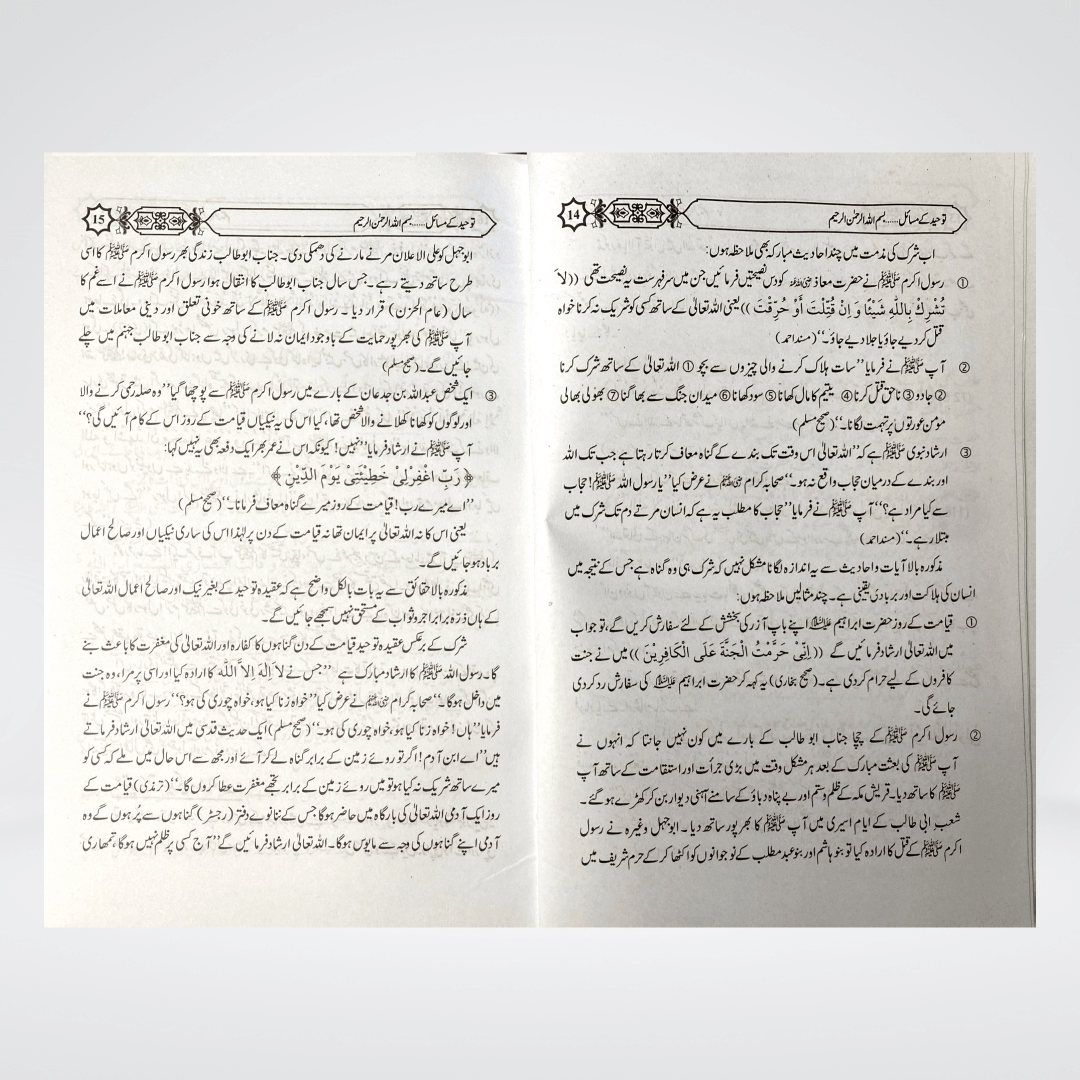 توحید کے مسائل......بسم اللہ الرحمٰن الرحیم
14
اب شرک کی مذمت میں چند احادیث مبارکہ بھی ملاحظہ ہوں:
① رسول اکرم ﷺ نے حضرت معاذ رضی اللہ عنہ کو دس نصیحتیں فرمائیں جن میں سرفہرست یہ نصیحت تھی ((لاَ
تُشْرِكْ بِاللّٰهِ شَيْئًا وَ اِنْ قُتِلْتَ أَوْ حُرِّقْتَ)) یعنی اللہ تعالیٰ کے ساتھ کسی کو شریک نہ کرنا خواہ
قتل کر دیے جاؤ یا جلا دیے جاؤ۔‘‘ (مسند احمد)
② آپ ﷺ نے فرمایا ’’سات ہلاک کرنے والی چیزوں سے بچو ① اللہ تعالیٰ کے ساتھ شرک کرنا
② جادو ③ ناحق قتل کرنا ④ یتیم کا مال کھانا ⑤ سود کھانا ⑥ میدان جنگ سے بھاگنا ⑦ بھولی بھالی
مومن عورتوں پر تہمت لگانا۔‘‘ (صحیح مسلم)
③ ارشاد نبوی ﷺ ہے کہ ’’اللہ تعالیٰ اس وقت تک بندے کے گناہ معاف کرتا رہتا ہے جب تک اللہ
اور بندے کے درمیان حجاب واقع نہ ہو۔‘‘ صحابہ کرام رضی اللہ عنہم نے عرض کیا ’’یا رسول اللہ ﷺ! حجاب
سے کیا مراد ہے؟‘‘ آپ ﷺ نے فرمایا ’’حجاب کا مطلب یہ ہے کہ انسان مرتے دم تک شرک میں
مبتلا رہے۔‘‘ (مسند احمد)
مذکورہ بالا آیات و احادیث سے یہ اندازہ لگانا مشکل نہیں کہ شرک ہی وہ گناہ ہے جس کے نتیجہ میں
انسان کی ہلاکت اور بربادی یقینی ہے۔ چند مثالیں ملاحظہ ہوں:
① قیامت کے روز حضرت ابراہیم علیہ السلام اپنے باپ آزر کی بخشش کے لئے سفارش کریں گے، تو جواب
میں اللہ تعالیٰ ارشاد فرمائیں گے ((اِنِّىْ حَرَّمْتُ الْجَنَّةَ عَلَى الْكَافِرِيْنَ)) میں نے جنت
کافروں کے لیے حرام کردی ہے۔ (صحیح بخاری) یہ کہہ کر حضرت ابراہیم علیہ السلام کی سفارش رد کر دی
جائے گی۔
② رسول اکرم ﷺ کے چچا جناب ابو طالب کے بارے میں کون نہیں جانتا کہ انہوں نے
آپ ﷺ کی بعثت مبارک کے بعد ہر مشکل وقت میں بڑی جرأت اور استقامت کے ساتھ آپ
ﷺ کا ساتھ دیا۔ قریش مکہ کے ظلم و ستم اور بے پناہ دباؤ کے سامنے آہنی دیوار بن کر کھڑے ہو گئے۔
شعب ابی طالب کے ایام اسیری میں آپ ﷺ کا بھرپور ساتھ دیا۔ ابوجہل وغیرہ نے رسول
اکرم ﷺ کے قتل کا ارادہ کیا تو بنو ہاشم اور بنو عبد مطلب کے نوجوانوں کو اکٹھا کر کے حرم شریف میں
توحید کے مسائل......بسم اللہ الرحمٰن الرحیم
15
ابوجہل کو علی الاعلان مرنے مارنے کی دھمکی دی۔ جناب ابو طالب زندگی بھر رسول اکرم ﷺ کا اسی
طرح ساتھ دیتے رہے۔ جس سال جناب ابو طالب کا انتقال ہوا رسول اکرم ﷺ نے اسے غم کا
سال (عام الحزن) قرار دیا۔ رسول اکرم ﷺ کے ساتھ خونی تعلق اور دینی معاملات میں
آپ ﷺ کی بھرپور حمایت کے باوجود ایمان نہ لانے کی وجہ سے جناب ابو طالب جہنم میں چلے
جائیں گے۔ (صحیح مسلم)
③ ایک شخص عبداللہ بن جدعان کے بارے میں رسول اکرم ﷺ سے پوچھا گیا ’’وہ صلہ رحمی کرنے والا
اور لوگوں کو کھانا کھلانے والا شخص تھا، کیا اس کی یہ نیکیاں قیامت کے روز اس کے کام آئیں گی؟‘‘
آپ ﷺ نے ارشاد فرمایا ’’نہیں! کیونکہ اس نے عمر بھر ایک دفعہ بھی یہ نہیں کہا:
﴿رَبِّ اغْفِرْلِىْ خَطِيْئَتِىْ يَوْمَ الدِّيْنِ﴾
’’اے میرے رب! قیامت کے روز میرے گناہ معاف فرمانا۔‘‘ (صحیح مسلم)
یعنی اس کا نہ اللہ تعالیٰ پر ایمان تھا نہ قیامت کے دن پر لہٰذا اس کی ساری نیکیاں اور صالح اعمال
برباد ہو جائیں گے۔
مذکورہ بالا حقائق سے یہ بات بالکل واضح ہے کہ عقیدہ توحید کے بغیر نیک اور صالح اعمال اللہ تعالیٰ
کے ہاں ذرّہ برابر اجر و ثواب کے مستحق نہیں سمجھے جائیں گے۔
شرک کے برعکس عقیدہ توحید قیامت کے دن گناہوں کا کفارہ اور اللہ تعالیٰ کی مغفرت کا باعث بنے
گا۔ رسول اللہ ﷺ کا ارشاد مبارک ہے ’’جس نے لاَ اِلٰهَ اِلاَّ اللّٰه کا ارادہ کیا اور اسی پر مرا، وہ جنت
میں داخل ہوگا۔‘‘ صحابہ کرام رضی اللہ عنہم نے عرض کیا ’’خواہ زنا کیا ہو، خواہ چوری کی ہو؟‘‘ رسول اکرم ﷺ نے
فرمایا ’’ہاں! خواہ زنا کیا ہو، خواہ چوری کی ہو۔‘‘ (صحیح مسلم) ایک حدیث قدسی میں اللہ تعالیٰ ارشاد فرماتے
ہیں ’’اے ابن آدم! اگر تو روئے زمین کے برابر گناہ لے کر آئے اور مجھ سے اس حال میں ملے کہ کسی کو
میرے ساتھ شریک نہ کیا ہو تو میں روئے زمین کے برابر تجھے مغفرت عطا کروں گا۔‘‘ (ترمذی) قیامت کے
روز ایک آدمی اللہ تعالیٰ کی بارگاہ میں حاضر ہوگا جس کے ننانوے دفتر (رجسٹر) گناہوں سے پر ہوں گے وہ
آدمی اپنے گناہوں کی وجہ سے مایوس ہوگا۔ اللہ تعالیٰ ارشاد فرمائیں گے ’’آج کسی پر ظلم نہیں ہوگا، تمھاری